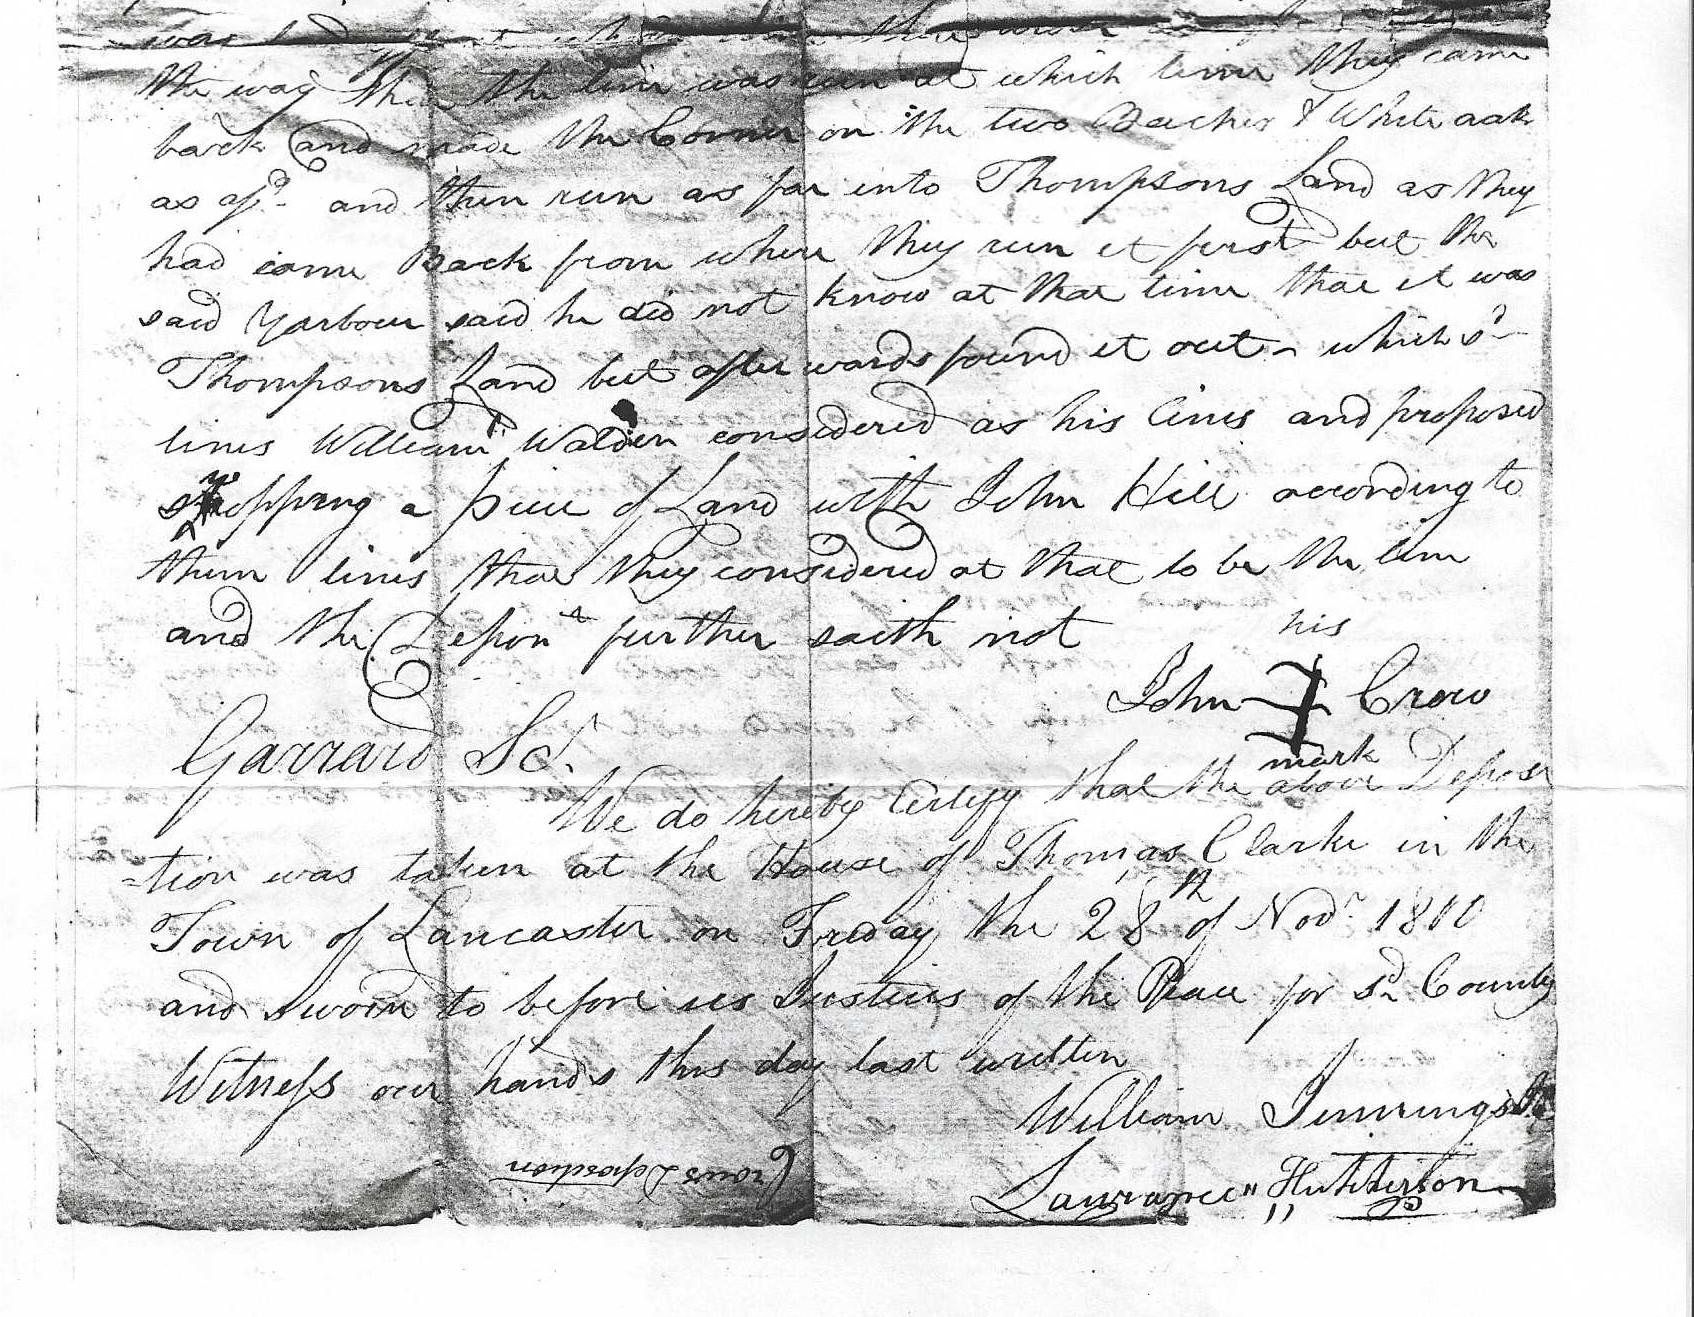 was
the way then the line was run at which time they came
back and made the Corner on the two Beaches & White oak
as afd. and then run as far into Thompsons Land as they
had come Back from where they run it first but the
said Yarbour said he did not know at that time that it was
Thompsons Land but afterwards found it out - which sd
lines William Walden considered as his lines and proposed
swopping a piece of Land with John Hill according to
them lines that they considered at that to be the line
and the Depont further saith not
his
John Crow
mark
Garrard Sct.
We do hereby Certify that the above Deposi
=tion was taken at the House of Thomas Clarke in the
Town of Lancaster on Friday the 28th of Novr 1800
and sworn to before us Justices of the Peace for sd County
Witness our hands this day last written
William Jennings
Lawrance Hutcherson
Crows Deposition